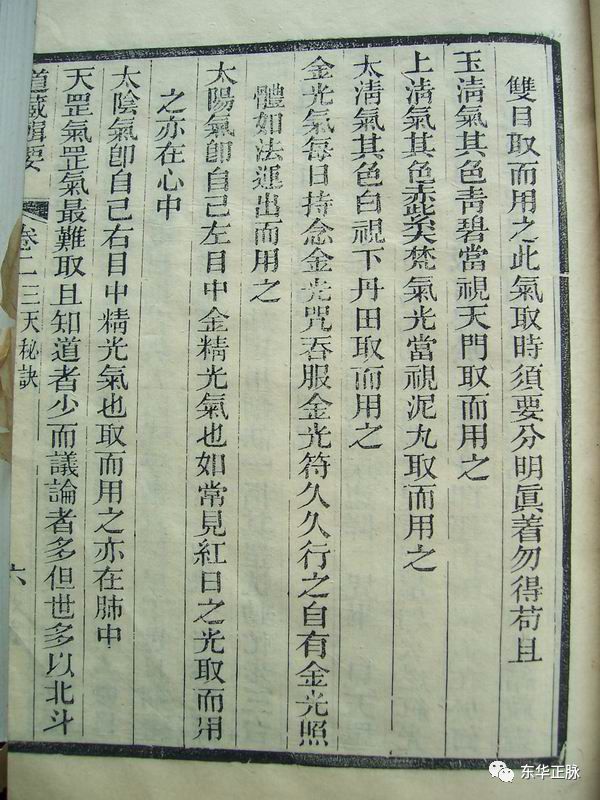 雙目取而用之此氣取時須要分明眞着勿得苟且
玉淸氣其色靑碧當視天門取而用之
上淸氣其色赤此矣梵氣光當視泥丸取而用之
太淸氣其色白視下丹田取而用之
金光氣每日持念金光咒吞服金光符久久行之自有金光照
體如法運出而用之
太陽氣卽自己左目中金精光氣也如常見紅日之光取而用
之亦在心中
太陰氣卽自己右目中精光氣也取而用之亦在肺中
天罡氣罡氣最難取且知道者少而議論者多但世多以北斗
道藏輯要 卷二三天秘訣 六
东华正脉